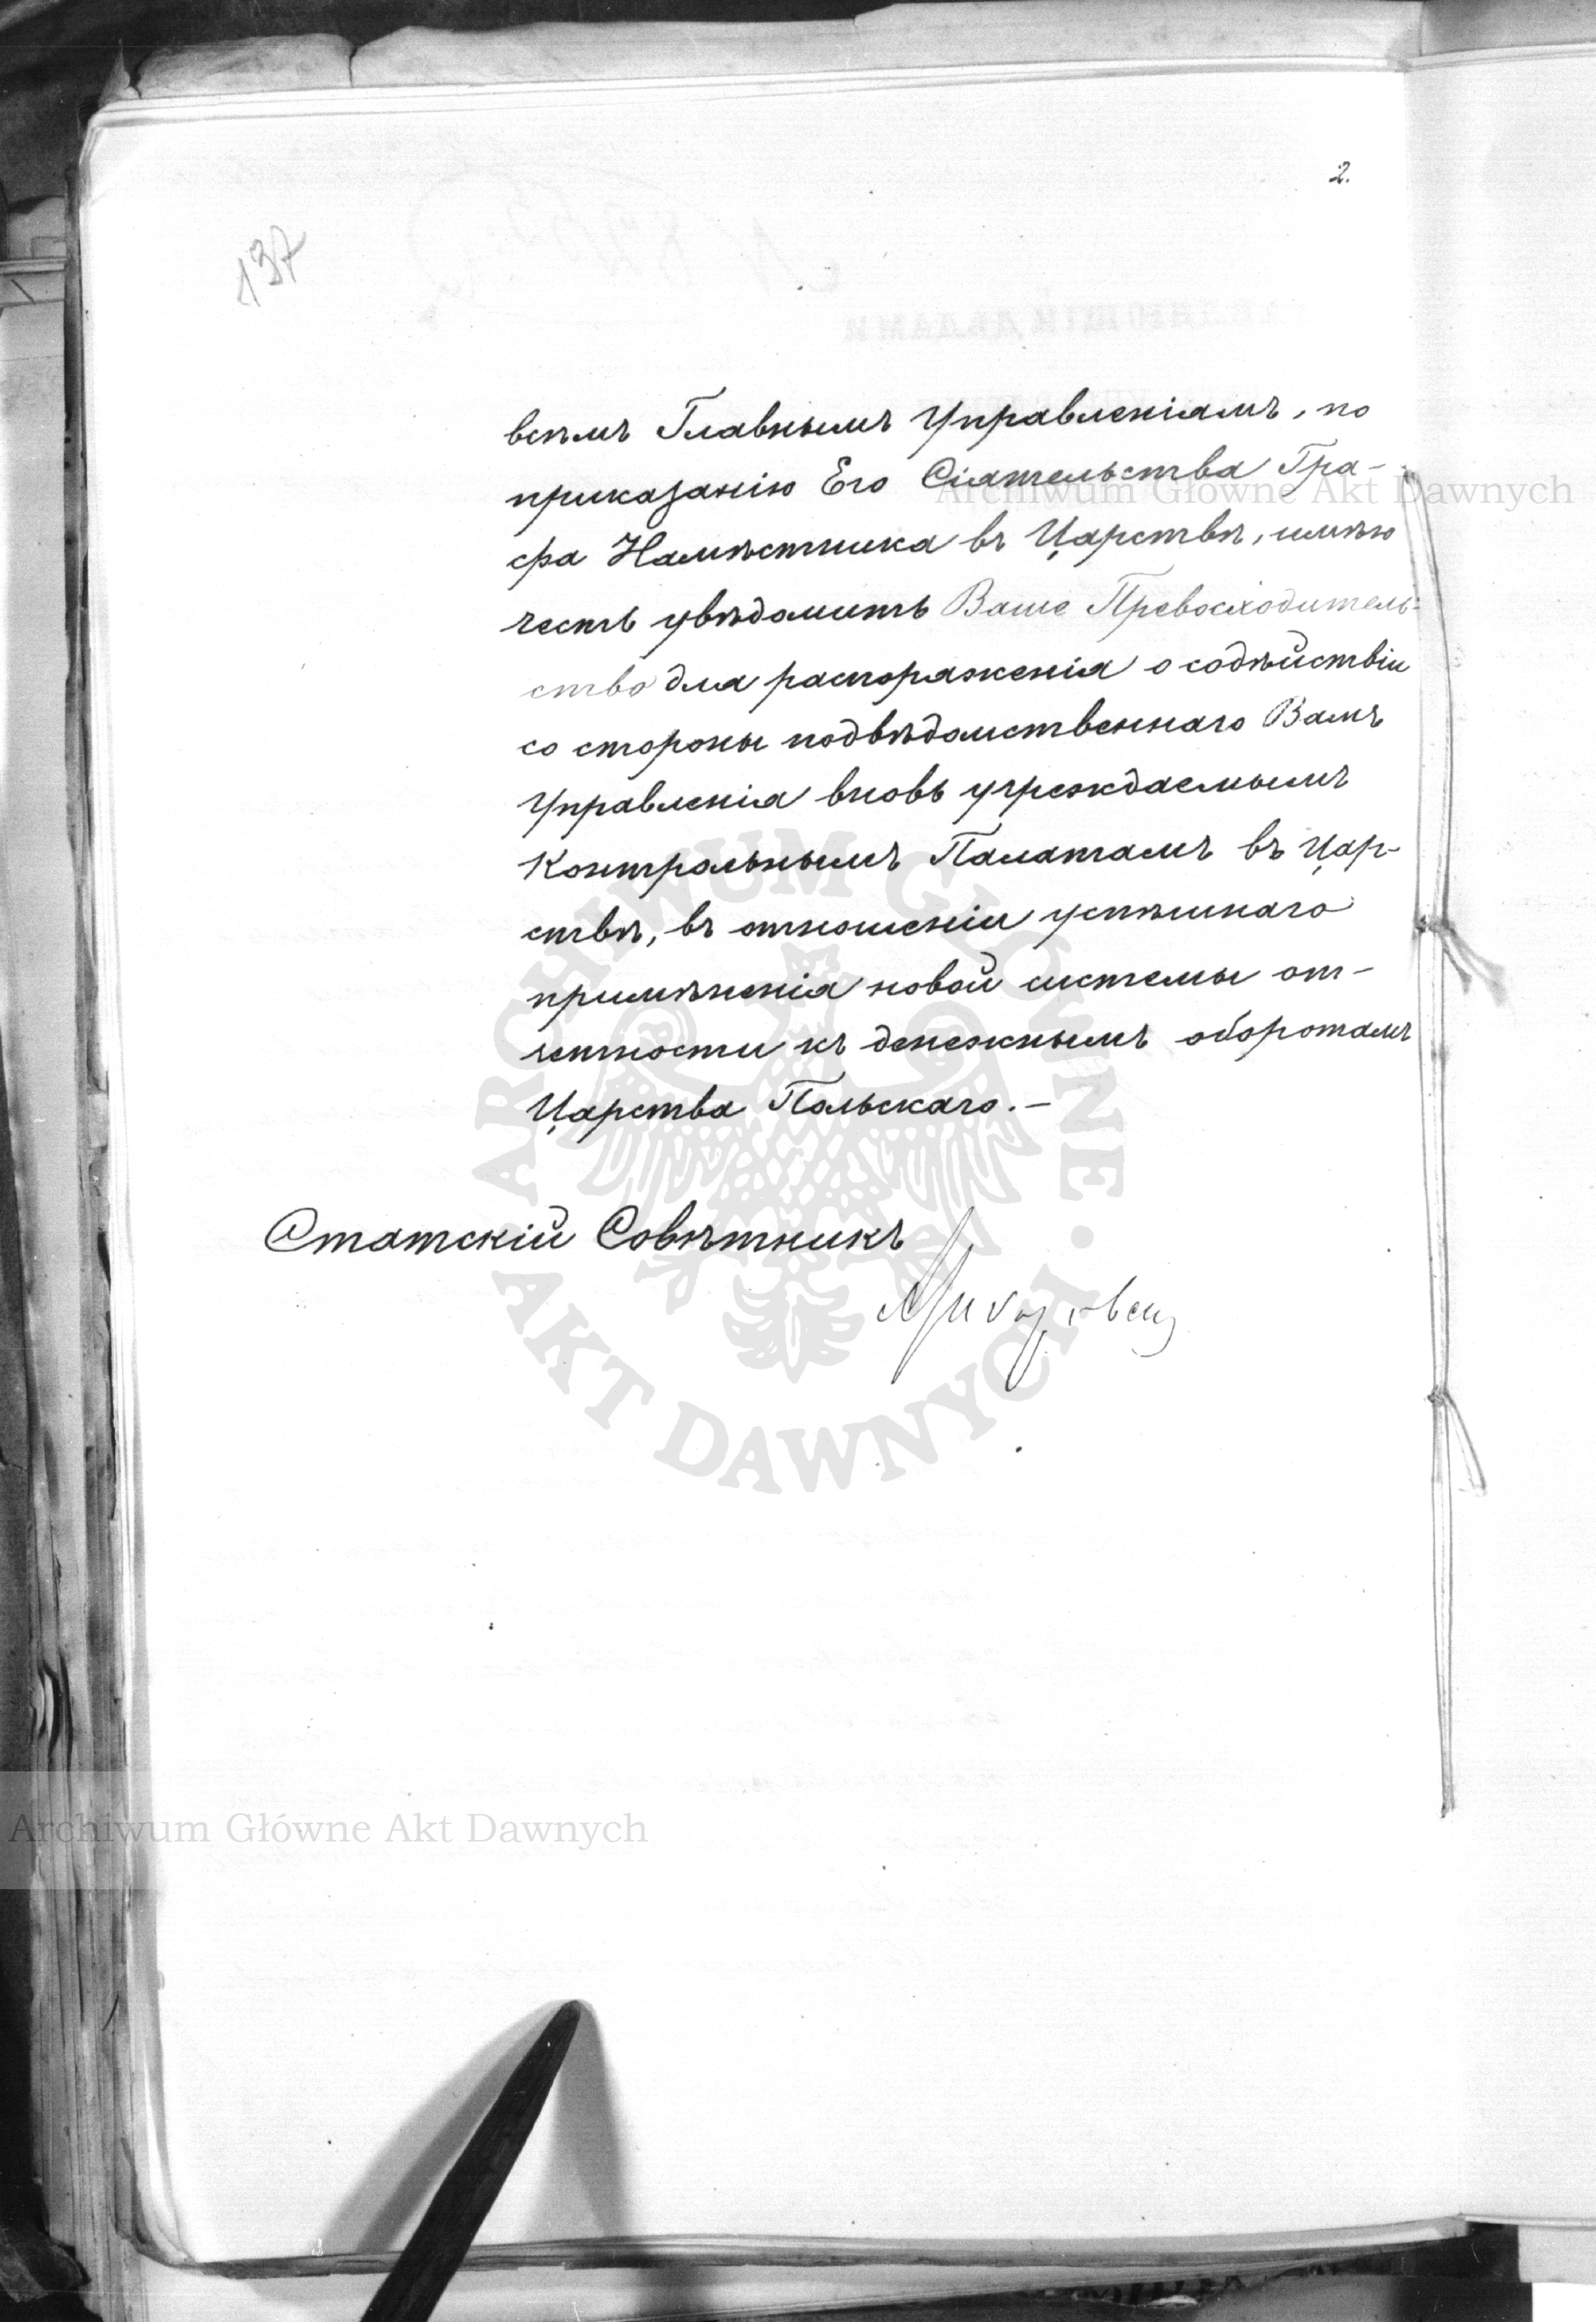 2.
137
всѣмъ Главнымъ Управленіямъ, по
приказанію Его Сіятельства Гра-
фа Намѣстника въ Царствѣ, имѣю
честь увѣдомить Ваше Превосходитель-
ство для распоряженія о содѣйствіи
со стороны подвѣдомственнаго Вамъ
Управленія вновь учреждаемымъ
Контрольнымъ Палатамъ въ Цар-
ствѣ, въ отношеніи успѣшнаго
примѣненія новой системы от-
четности къ денежнымъ оборотамъ
Царства Польскаго.—
Статскій Совѣтникъ
Archiwum Główne Akt Dawnych
ARCHIWUM GŁÓWNE AKT DAWNYCH
Archiwum Główne Akt Dawnych